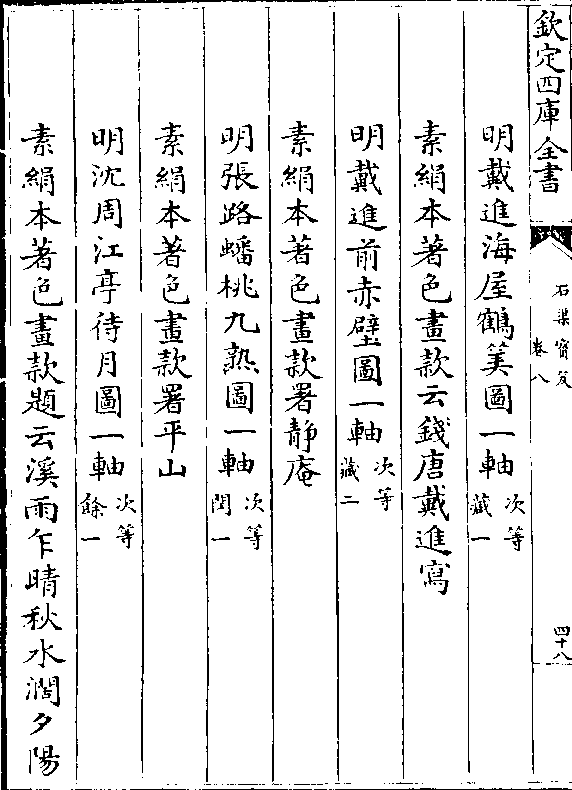 欽定四庫全書
石渠寶笈
卷八
四十八
明戴進海屋鶴筭圖一軸 次等藏一
素絹本著色畫款云錢唐戴進寫
明戴進前赤壁圖一軸 次等藏二
素絹本著色畫款署靜庵
明張路蟠桃九熟圖一軸 次等閏一
素絹本著色畫款署平山
明沈周江亭待月圖一軸 次等餘一
素絹本著色畫款題云溪雨乍晴秋水濶夕陽